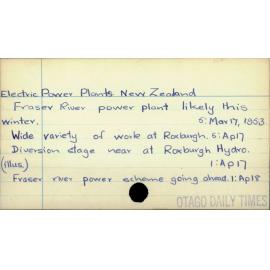 Electric Power Plants New Zealand
Fraser River power plant likely this
winter. 5: Mar 17, 1953
Wide variety of work at Roxburgh. 5: Ap 17
Diversion stage near at Roxburgh Hydro.
(illus.) 1: Ap 17
Fraser river power scheme going ahead. 1: Ap 18
OTAGO DAILY TIMES